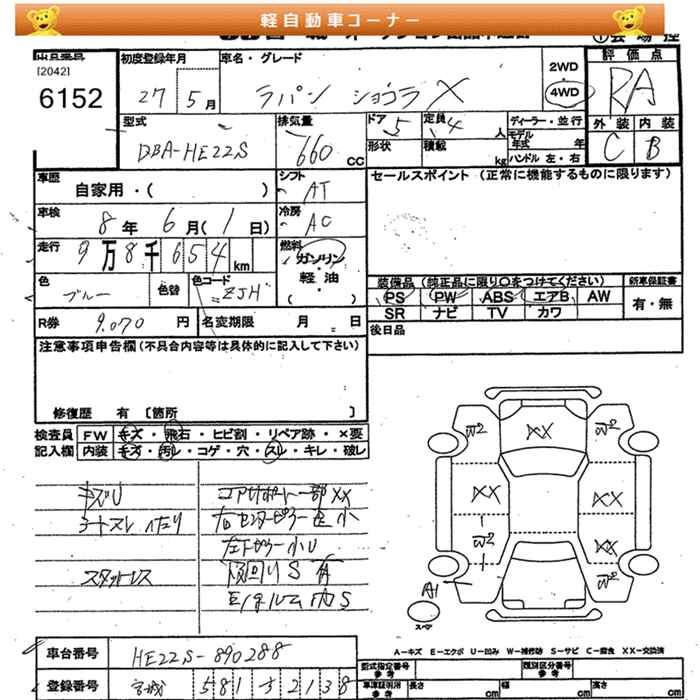 軽自動車コーナー
[2042]
6152
初度登録年月
27 5月
車名・グレード
ラパン ショコラ X
2WD
4WD
評価点
RA
外装 内装
C B
型式
DBA-HE22S
排気量
660 CC
ドア 5
定員 4 人
形状
積載 kg
ディーラー・並行
モデル年式 年
ハンドル 左・右
車歴
自家用・( )
シフト
AT
セールスポイント (正常に機能するものに限ります)
車検
8年 6月( 1日)
冷房
AC
走行
9万8千654km
燃料
ガソリン・軽油
( )
色
ブルー
色替
色コード
ZJH
装備品 (純正品に限り○をつけてください)
PS PW ABS エアB AW
SR ナビ TV カワ
新車保証書
有・無
R券 9.070 円
名変期限 月 日
後日品
注意事項申告欄 (不具合内容等は具体的に記入して下さい)
修復歴 有 〔箇所 〕
検査員記入欄
FW キズ・飛石・ヒビ割・リペア跡・×要
内装 キズ・汚レ・コゲ・穴・スレ・キレ・破レ
キズU
コアサポート一部XX
シートスレ
右センターピラー
小
小U
スタットレス
S 有
内S
W2 XX W2
XX XX
W2 XX
W2
A1
スペア
A-キズ E-エクボ U-凹み W-補修跡 S-サビ C-腐食 XX-交換済
車台番号
HE22S-890288
型式指定番号 参考
類別区分番号 参考
登録番号
宮城 581 す 2138
車庫証明用 参考
長さ cm 幅 cm 高さ cm